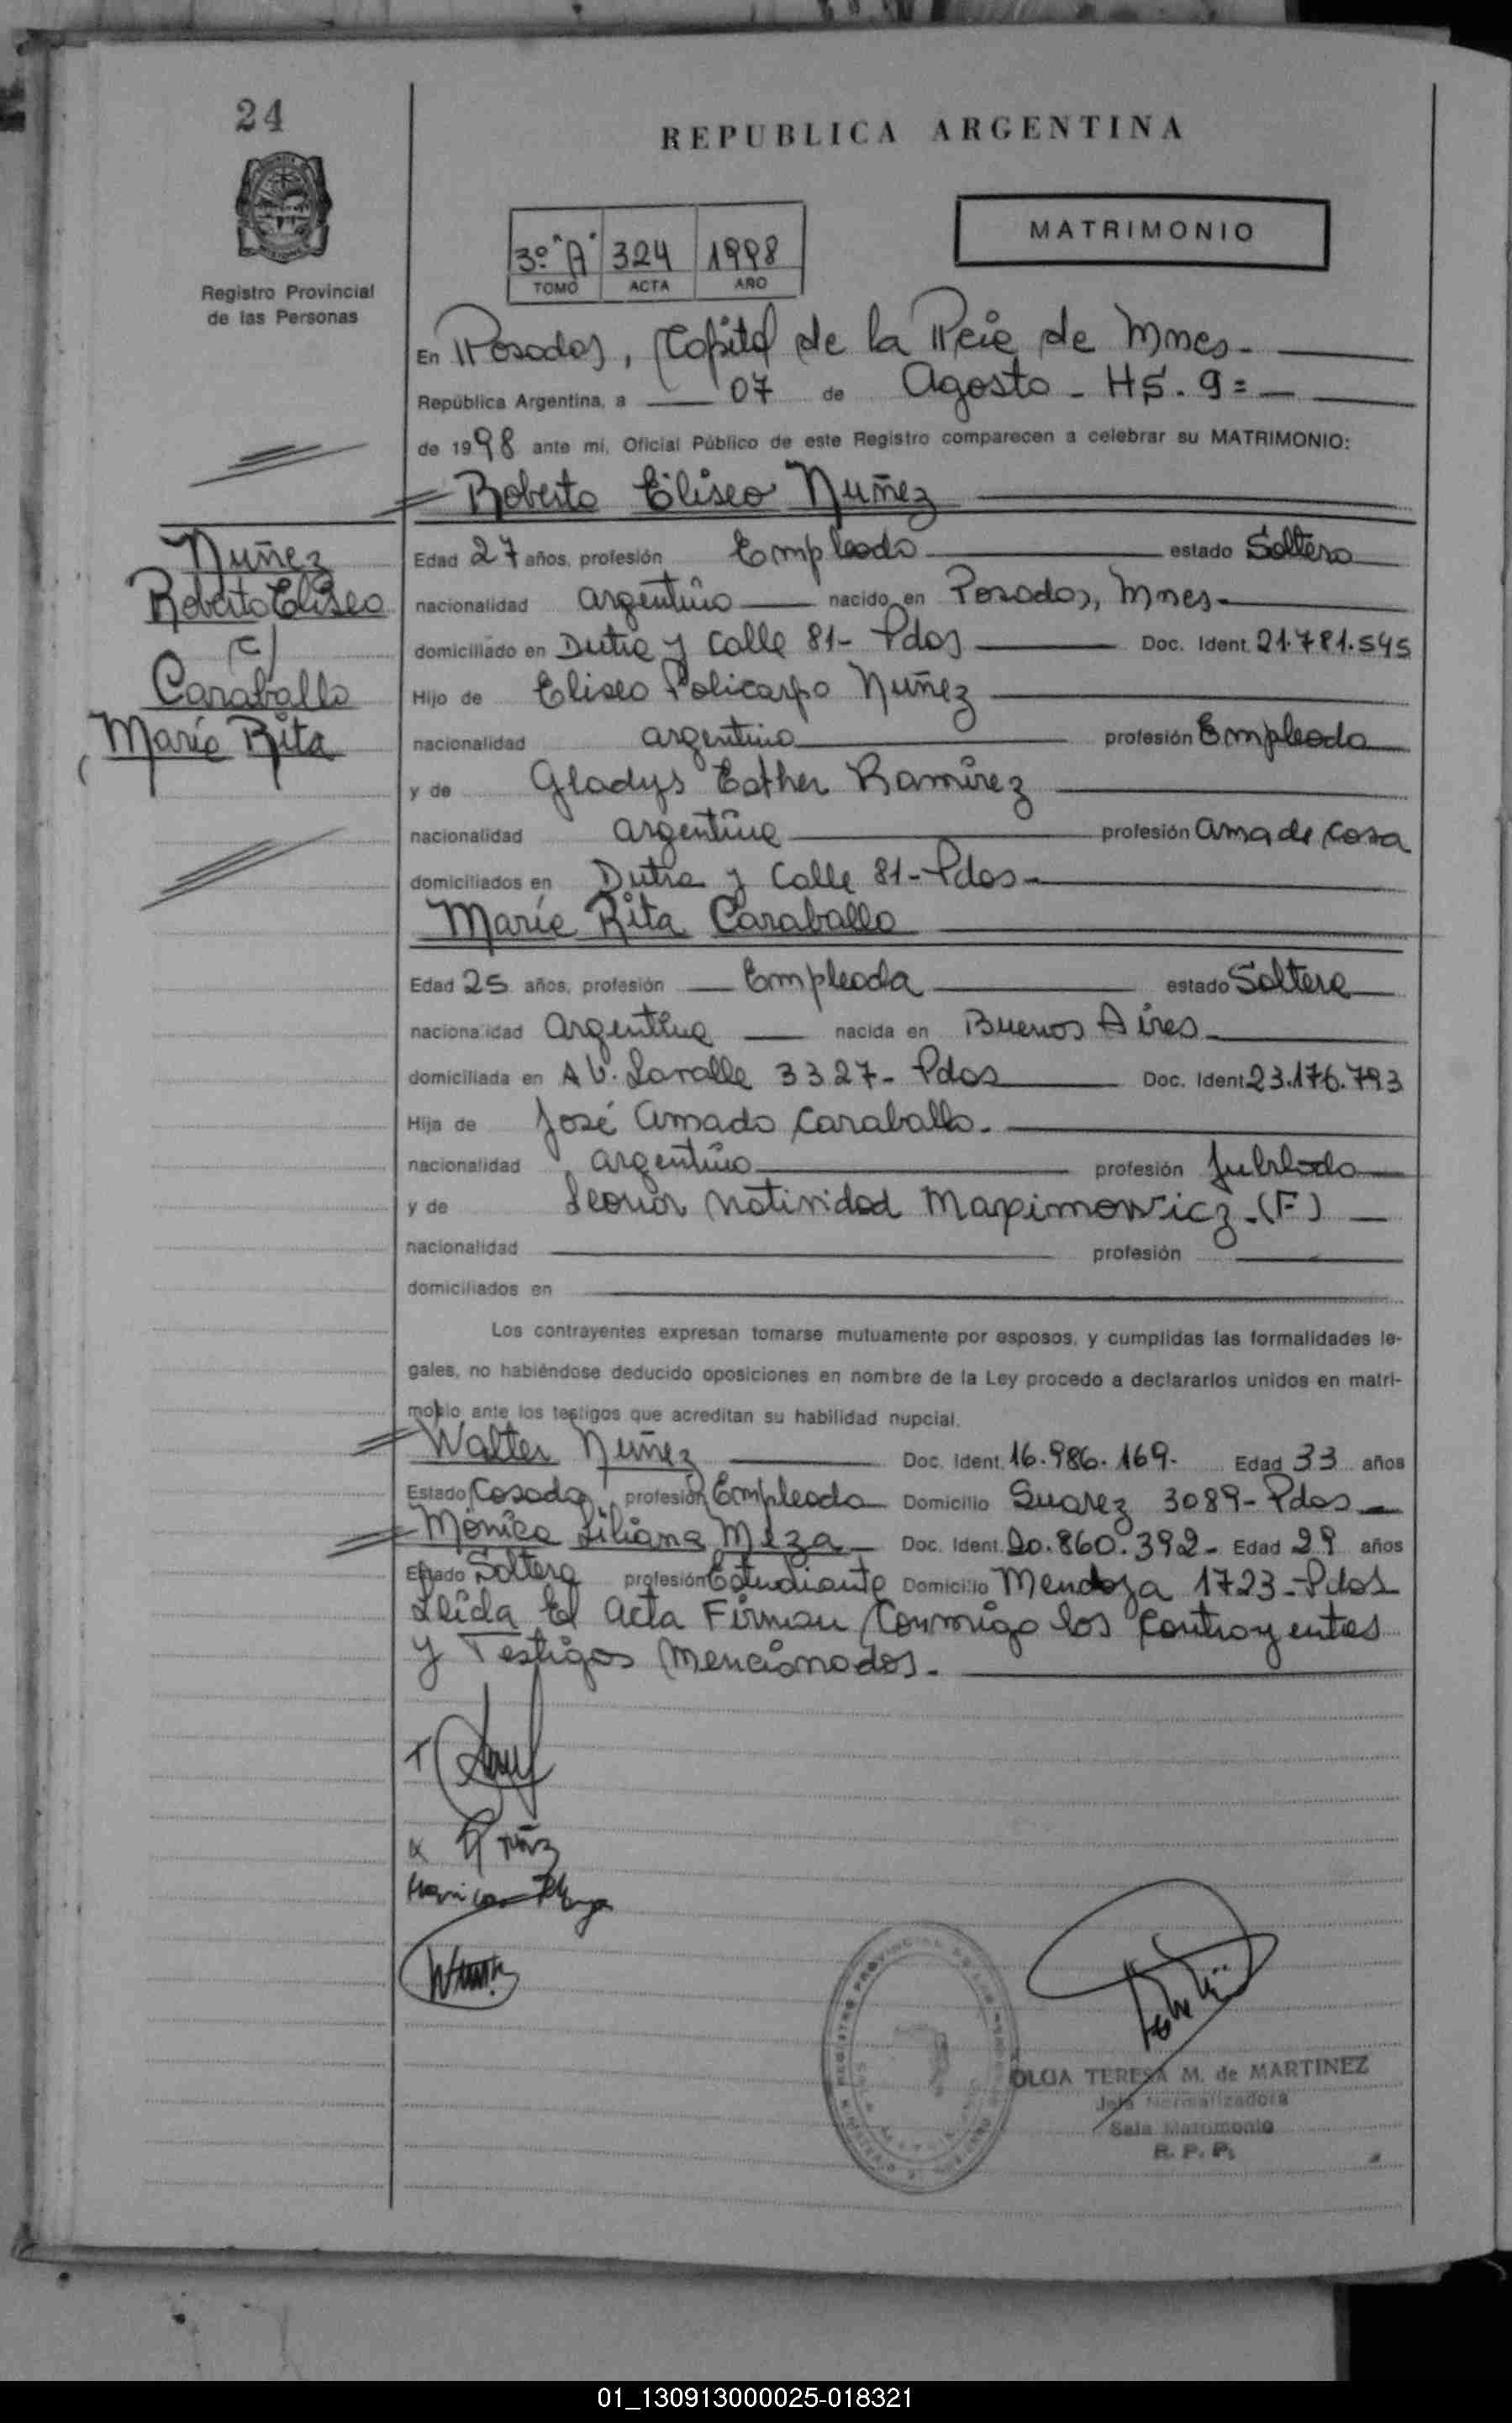 24
REPUBLICA ARGENTINA
MATRIMONIO
3º "A" 324 1998
TOMO ACTA AÑO
Registro Provincial
de las Personas
En Posadas, Capital de la Pcia de Mnes.
República Argentina, a 07 de Agosto - HS. 9=
de 1998 ante mi, Oficial Público de este Registro comparecen a celebrar su MATRIMONIO:
Roberto Eliseo Nuñez
Nuñez
Roberto Eliseo
c/
Caraballo
María Rita
Edad 27 años, profesión Empleado estado Soltero
nacionalidad argentino nacido en Posadas, Mnes-
domiciliado en Dutra y Calle 81- Pdas Doc. Ident. 21.781.545
Hijo de Eliseo Policarpo Nuñez
nacionalidad argentino profesión Empleado
y de Gladys Esther Ramírez
nacionalidad argentina profesión ama de casa
domiciliados en Dutra y Calle 81-Pdas-
María Rita Caraballo
Edad 25 años, profesión Empleada estado Soltera
nacionalidad Argentina nacida en Buenos Aires
domiciliada en Av. Lavalle 3327- Pdas Doc. Ident 23.176.793
Hija de José Amado Caraballo.
nacionalidad argentino profesión Jubilado
y de Leonor Natividad Maximowicz-(F)
nacionalidad profesión
domiciliados en
Los contrayentes expresan tomarse mutuamente por esposos, y cumplidas las formalidades le-
gales, no habiéndose deducido oposiciones en nombre de la Ley procedo a declararlos unidos en matri-
monio ante los testigos que acreditan su habilidad nupcial.
Walter Nuñez Doc. Ident. 16.986.169- Edad 33 años
Estado Casado profesión Empleado Domicilio Suarez 3089-Pdas
Mónica Liliana Meza Doc. Ident. 20.860.392- Edad 29 años
Estado Soltera profesión Estudiante Domicilio Mendoza 1723-Pdas
Leída El acta Firman Conmigo los Contrayentes
y Testigos Mencionados.
OLGA TERESA M. de MARTINEZ
Jefa Normalizadora
Sala Matrimonio
R. P. P.
01_130913000025-018321